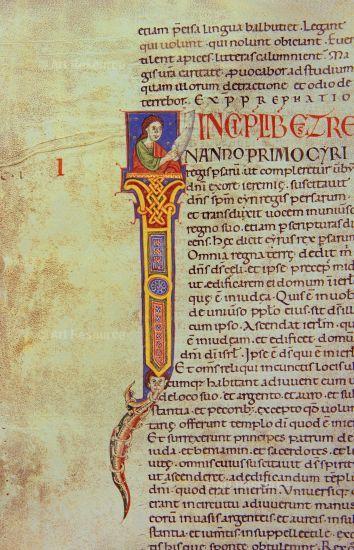 etiam p̄cisa lingua balbutiet. Legant
qui uolunt. qui nolunt obiciant. Euen
tilent apices. litteras calumnient. Ma
gis ura caritate p̄uocabor ad studium
quam illorum detractione et odio de
terrebor. EXP PREPHATIO
I INCIP LIB EZRE
IN ANNO PRIMO CYRI
regis psarum ut compleretur uerbū
dn̄i ex ore ieremie. suscitauit
dn̄s spm̄ cyri regis persarum.
et transduxit uocem in uniuerso
regno suo. etiam p scripturam di
cens. hec dicit cyrus rex psarum
Omnia regna terre dedit m̄
dn̄s ds̄ celi. et ipse precep̄ m̄
ut edificarem ei domum in ierl̄m
que ē in iudea. Quis ē in uobis
de uniuerso pplo eius. sit ds̄ illius
cum ipso. Ascendat ierl̄m. que ē
in iudeam. et edificet domū
dn̄i dī isrl̄. Ipse ē ds̄ qui ē in ierl̄m
Et om̄s reliqui in cunctis locis ubi
cumque habitant adiuuent eum
de loco suo. et argento et auro. et sub
stantia. et pecorib. excepto qd̄ uolun
tarie offerunt templo dī quod ē in
Et surrexerunt principes patrum de
iuda. et beniamin. et sacerdotes. et
uite. omnis cuius suscitauit ds̄ spirit
ut ascenderet. ad edificandum templū
dn̄i. quod erat in ierl̄m. Uniuersiq;
erant in circuitu adiuuerunt manus
eorū in uasis argenteis. et aureis. in sub
stantia. et iumtis. in suppellectile. exc
his que sponte obtulerunt. Rex